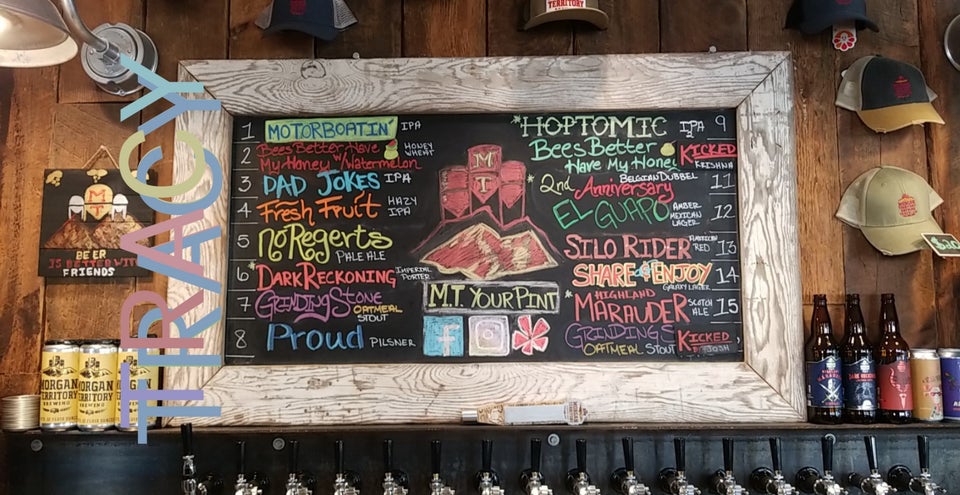 TERRITORY
TRACY
1 MOTORBOATIN' IPA
2 Bees Better Have My Honey w/Watermelon HONEY WHEAT
3 DAD JOKES IPA
4 Fresh Fruit HAZY IPA
5 NoRegerts PALE ALE
6 * DARK RECKONING IMPERIAL PORTER
7 GRINDINGSTONE OATMEAL STOUT
8 Proud PILSNER
M
T
M.T. YOUR PINT
f
*HOPTOMIC IPA 9
Bees Better Have My Hone! KICKED
BELGIAN DUBBEL
*2nd Anniversary 11
EL GUAPO AMBER MEXICAN LAGER 12
SILO RIDER AMERICAN RED 13
SHARE & ENJOY GALAXY LAGER 14
* HIGHLAND MARAUDER SCOTCH ALE 15
GRINDINGS OATMEAL STOUT KICKED JOSH
M
BEER
IS BETTER WITH
FRIENDS
MORGAN
TERRITORY
BREWING
MORGAN
TERRITORY
BREWING
$20